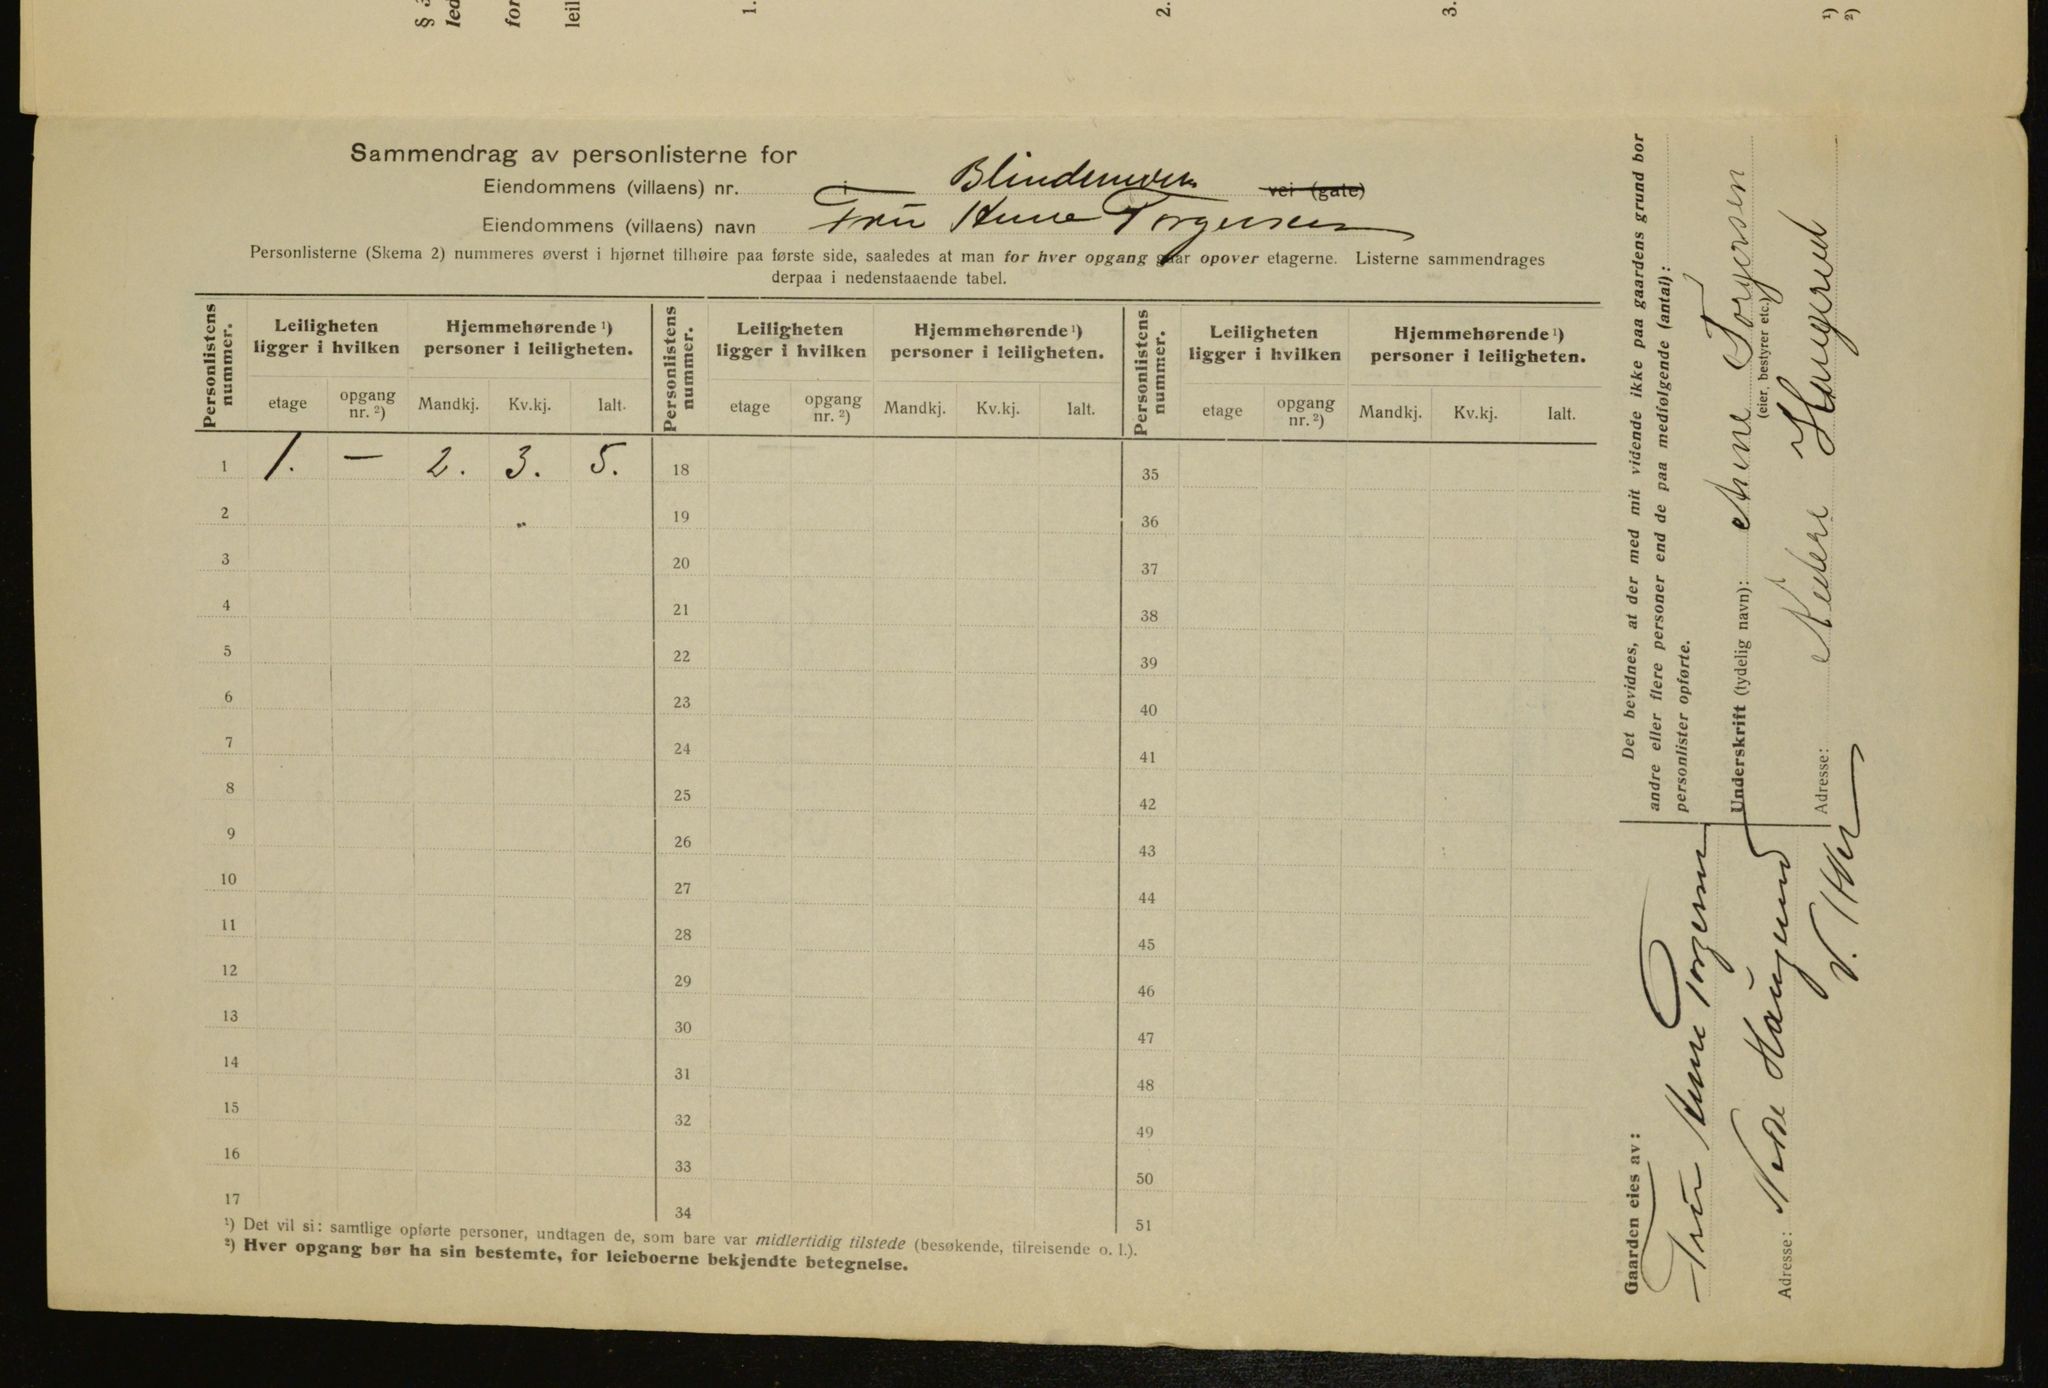 § 3
led
for
leil
1.
2.
3.
¹)
²)
Sammendrag av personlisterne for
Eiendommens (villaens) nr. i Blindernveien vei (gate)
Eiendommens (villaens) navn Fru Anne Torgersen
Personlisterne (Skema 2) nummeres øverst i hjørnet tilhøire paa første side, saaledes at man for hver opgang gaar opover etagerne. Listerne sammendrages
derpaa i nedenstaaende tabel.
Personlistens nummer. Leiligheten ligger i hvilken Hjemmehørende ¹) personer i leiligheten. Personlistens nummer. Leiligheten ligger i hvilken Hjemmehørende ¹) personer i leiligheten. Personlistens nummer. Leiligheten ligger i hvilken Hjemmehørende ¹) personer i leiligheten.
etage opgang nr. ²) Mandkj. Kv.kj. Ialt. etage opgang nr. ²) Mandkj. Kv.kj. Ialt. etage opgang nr. ²) Mandkj. Kv.kj. Ialt.
1 1. — 2. 3. 5. 18 35
2 „ 19 36
3 20 37
4 21 38
5 22 39
6 23 40
7 24 41
8 25 42
9 26 43
10 27 44
11 28 45
12 29 46
13 30 47
14 31 48
15 32 49
16 33 50
17 34 51
¹) Det vil si: samtlige opførte personer, undtagen de, som bare var midlertidig tilstede (besøkende, tilreisende o. l.).
²) Hver opgang bør ha sin bestemte, for leieboerne bekjendte betegnelse.
Det bevidnes, at der med mit vidende ikke paa gaardens grund bor
andre eller flere personer end de paa medfølgende (antal):
personlister opførte.
Underskrift (tydelig navn): Anne Torgersen
(eier, bestyrer etc.)
Adresse: Nedre Haugerud
Gaarden eies av:
Fru Anne Torgersen
Adresse: Nedre Haugerud
V. Aker